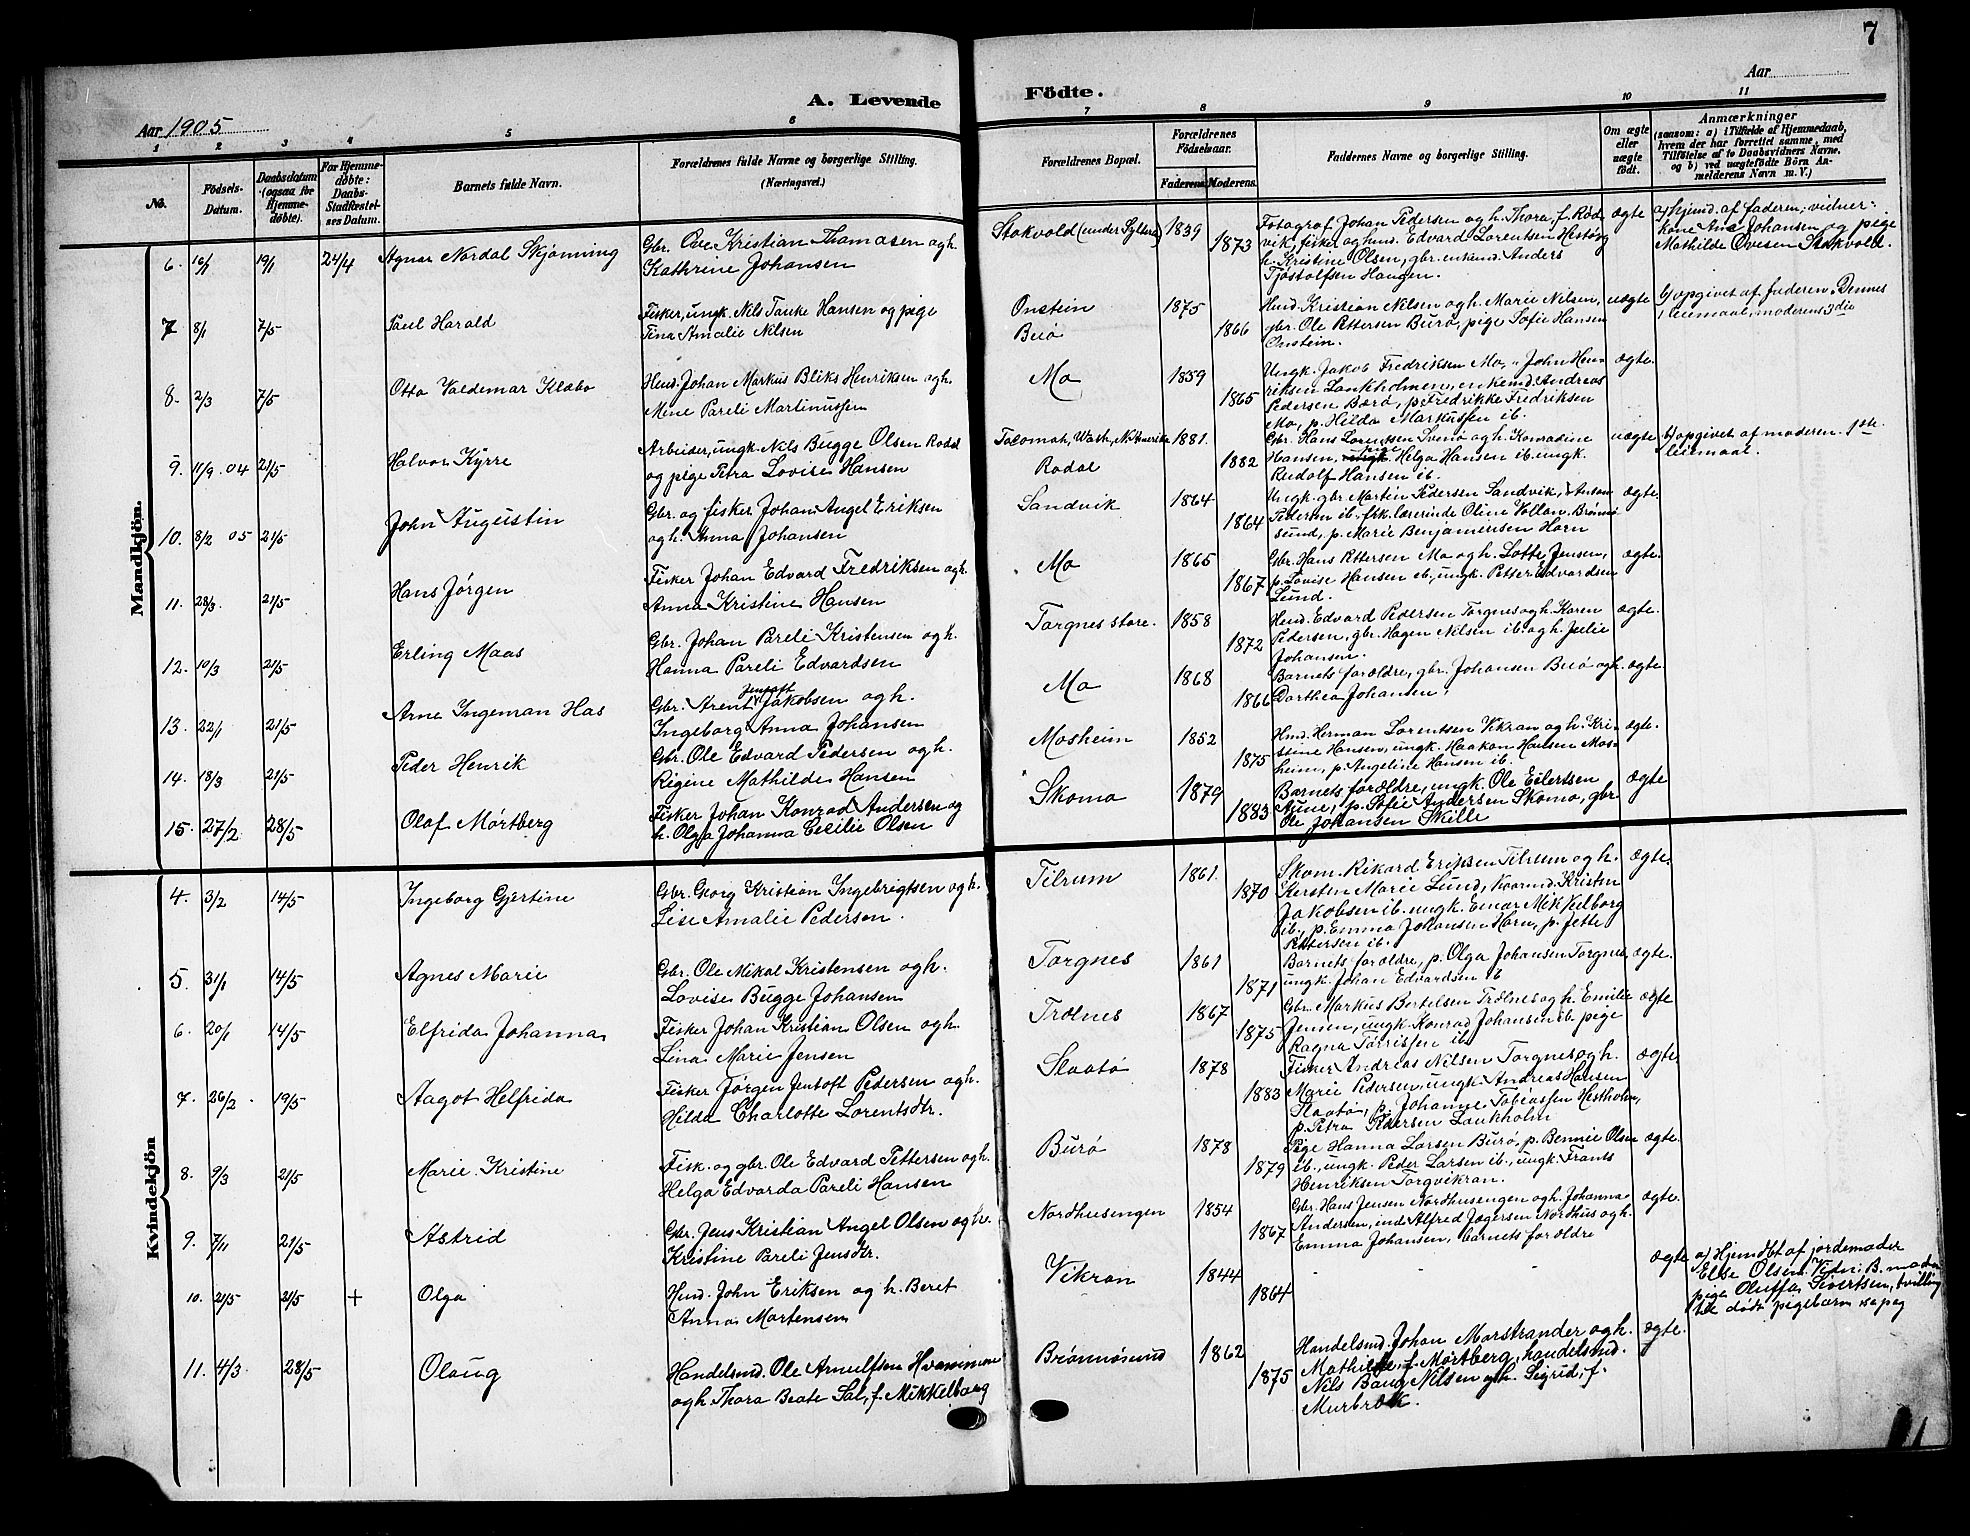 7
A. Levende Födte.
Aar 1905
Aar
1 2 3 4 5 6 7 8 9 10 11
No.
Födsels-Datum.
Daabsdatum (ogsaa for Hjemmedøbte).
For Hjemmedøbte: Daabs-Stadfæstelses Datum.
Barnets fulde Navn.
Forældrenes fulde Navne og borgerlige Stilling. (Næringsvei.)
Forældrenes Bopæl.
Forældrenes Födselsaar.
Faderens. Moderens.
Faddernes Navne og borgerlige Stilling.
Om ægte eller uægte födt.
Anmærkninger (saasom: a) i Tilfælde af Hjemmedaab, hvem der har forrettet samme, med Tilföielse af to Daabsvidners Navne, og b) ved uægtefödte Börn Anmelderens Navn m. V.)
Mandkjön.
6. 16/1 19/1 24/4 Agnar Nordal Skjønning
Gbr. Ove Kristian Thomasen og h.
Kathrine Johansen
Stokvold (under Sylten) 1839 1873
Fotograf Johan Pedersen og h. Thora, f. Rød
vik, fisker og hmd. Edvard Lorentsen Hestøg
h. Kristine Olsen, gbr. enkemd. Anders
Tjøstolfsen Haugen.
ægte
a) hjemd. af faderen; vidner:
kone Ana Johansen og pige
Mathilde Ovesen Stokvold.
7 8/1 7/5 Paul Harald
Fisker, ungk. Nils Tanke Hansen og pige
Tina Amalie Nilsen
Onstein
Buø
1875 1866
Hmd. Kristian Nilsen og h. Marie Nilsen,
gbr. Ole Pettersen Burø, pige Sofie Hansen
Onstein.
uægte
b) opgivet af faderen. Dennes
1 leiemaal, moderens 3die
8. 2/3 7/5 Otto Valdemar Klæbo
Hmd. Johan Markus Bliks Henriksen og h.
Mine Pareli Martinussen
Mo 1859 1865
Ungk. Jakob Fredriksen Mo, " John Hen
riksen Lankholmen, enkemd. Andreas
Pedersen Bærø, p. Fredrikke Fredriksen
Mo, p. Hilda Markussen ib.
ægte.
9. 11/9 04 21/5 Halvor Kyrre
Arbeider, ungk. Nils Bugge Olsen Rodal
og pige Petra Lovise Hansen
Tacomah, Wash, N. Amerika 1881.
Rodal 1882
Gbr. Hans Lorentsen Svenø og h. Konradine
Hansen, pige Helga Hansen ib. ungk.
Rudolf Hansen ib.
uægte
b) opgivet af moderen. 1ste
leiemaal.
10. 8/2 05 21/5 John Augustin
Gbr. og fisker Johan Angel Eriksen
og h. Anna Johansen
Sandvik 1864 1864
Ungk. gbr. Martin Pedersen Sandvik, Anton
Pedersen ib. fhk. lærerinde Oline Vollan, Brønnø
sund, p. Marie Benjaminsen Horn
ægte.
11. 28/3 21/5 Hans Jørgen
Fisker Johan Edvard Fredriksen og h.
Anna Kristine Hansen
Mo 1865 1867
Gbr. Hans Pettersen Mo og h. Lotte Jensen,
p. Lovise Hansen ib., ungk. Petter Edvardsen
Lund.
ægte.
12. 10/3 21/5 Erling Maas
Gbr. Johan Pareli Kristensen og h.
Hanna Pareli Edvardsen
Torgnes store. 1858 1872
Hmd. Edvard Pedersen Torgnes og h. Karen
Pedersen, gbr. Hagen Nilsen ib. og h. Julie
Johansen.
ægte.
13. 22/1 21/5 Arne Ingeman Has
Gbr. Arent Jentoft Jakobsen og h.
Ingeborg Anna Johansen
Mo 1868 1866
Barnets forældre, gbr. Johansen Buø og h.
Dorthea Johansen.
ægte.
14. 18/3 21/5 Peder Henrik
Gbr. Ole Edvard Pedersen og h.
Rigine Mathilde Hansen
Mosheim 1852 1875
Hmd. Herman Lorentsen Vikran og h. Kri-
stine Hansen, ungk. Haakon Hansen Mos-
heim, p. Angeline Hansen ib.
ægte.
15. 27/2 28/5 Olaf Mørtberg
Fisker Johan Konrad Andersen og
h. Olga Johanna Cecilie Olsen
Skomo 1879 1883
Barnets forældre, ungk. Ole Eilertsen
Aune, p. Sofie Andersen Skomo, gbr.
Ole Johansen Skille
ægte
Kvindekjön
4. 3/2 14/5 Ingeborg Gjertine
Gbr. Georg Kristian Ingebrigtsen og h.
Lise Amalie Pedersen.
Tilrum 1861. 1870
Skom. Rikard Eriksen Tilrum og h.
Kersten Marie Lund, Kaarmd. Kristen
Jakobsen ib. ungk. Einar Mikkelborg
ib., p. Emma Johansen Horn, p. Jette
Pettersen ib.
ægte.
5. 31/1 14/5 Agnes Marie
Gbr. Ole Mikal Kristensen og h.
Lovise Bugge Johansen
Torgnes 1861 1871
Barnets forældre, p. Olga Johansen Torgnes
ungk. Johan Edvardsen ib
ægte.
6. 20/1 14/5 Elfrida Johanna
Fisker Johan Kristian Olsen og h.
Lina Marie Jensen
Trælnes 1867 1875
Gbr. Markus Bertelsen Trælnes og h. Emilie
Jensen, ungk. Konrad Johansen ib. pige
Ragna Tørrissen ib.
ægte
7. 26/2. 19/5 Aagot Helfrida
Fisker Jørgen Jentoft Pedersen og h.
Hilda Charlotte Lorentsdtr.
Slaatø 1878 1883
Fisker Andreas Nilsen Torgnes og h.
Marie Pedersen, ungk. Andreas Hansen
Slaatø, p. Johanne Tobiassen Hestholm,
p. Petra Pedersen Lankholm
ægte.
8. 9/3 21/5 Marie Kristine
Fisk. og gbr. Ole Edvard Pettersen og h.
Helga Edvarda Pareli Hansen
Burø 1878 1879
Pige Hanna Larsen Burø, p. Bennie Olsen
ib., ungk. Peder Larsen ib., ungk. Frants
Henriksen Torgvikran.
ægte.
9. 7/11 21/5 Astrid
Gbr. Jens Kristian Angel Olsen og h.
Kristine Pareli Jensdtr.
Nordhusengen 1854 1867
Gbr. Hans Jensen Nordhusengen og h. Johanna
Andersen, ind. Alfred Jægersen Nordhus og h.
Emma Johansen, barnets forældre
ægte.
10. 2/5 2/5 + Olga
Hmd. John Eriksen og h. Beret
Anna Mortensen
Vikran 1844 1864
ægte
a) Hjemdbt af jordemoder
Else Olsen. Vidn: B. moder
pige Oluffa Sivertsen, tvilling
til dødf. pigebarn
11. 4/3 28/5 Olaug
Handelsmd. Ole Arnulfsen Hvamme
og h. Thora Beate Sal, f. Mikkelborg
Brønnøsund 1862 1875
Handelsmd. Johan Marstrander og h.
Mathilde, f. Mørtberg, handelsmd.
Nils Baug Nilsen og h. Sigrid, f.
Murbræk.
ægte.